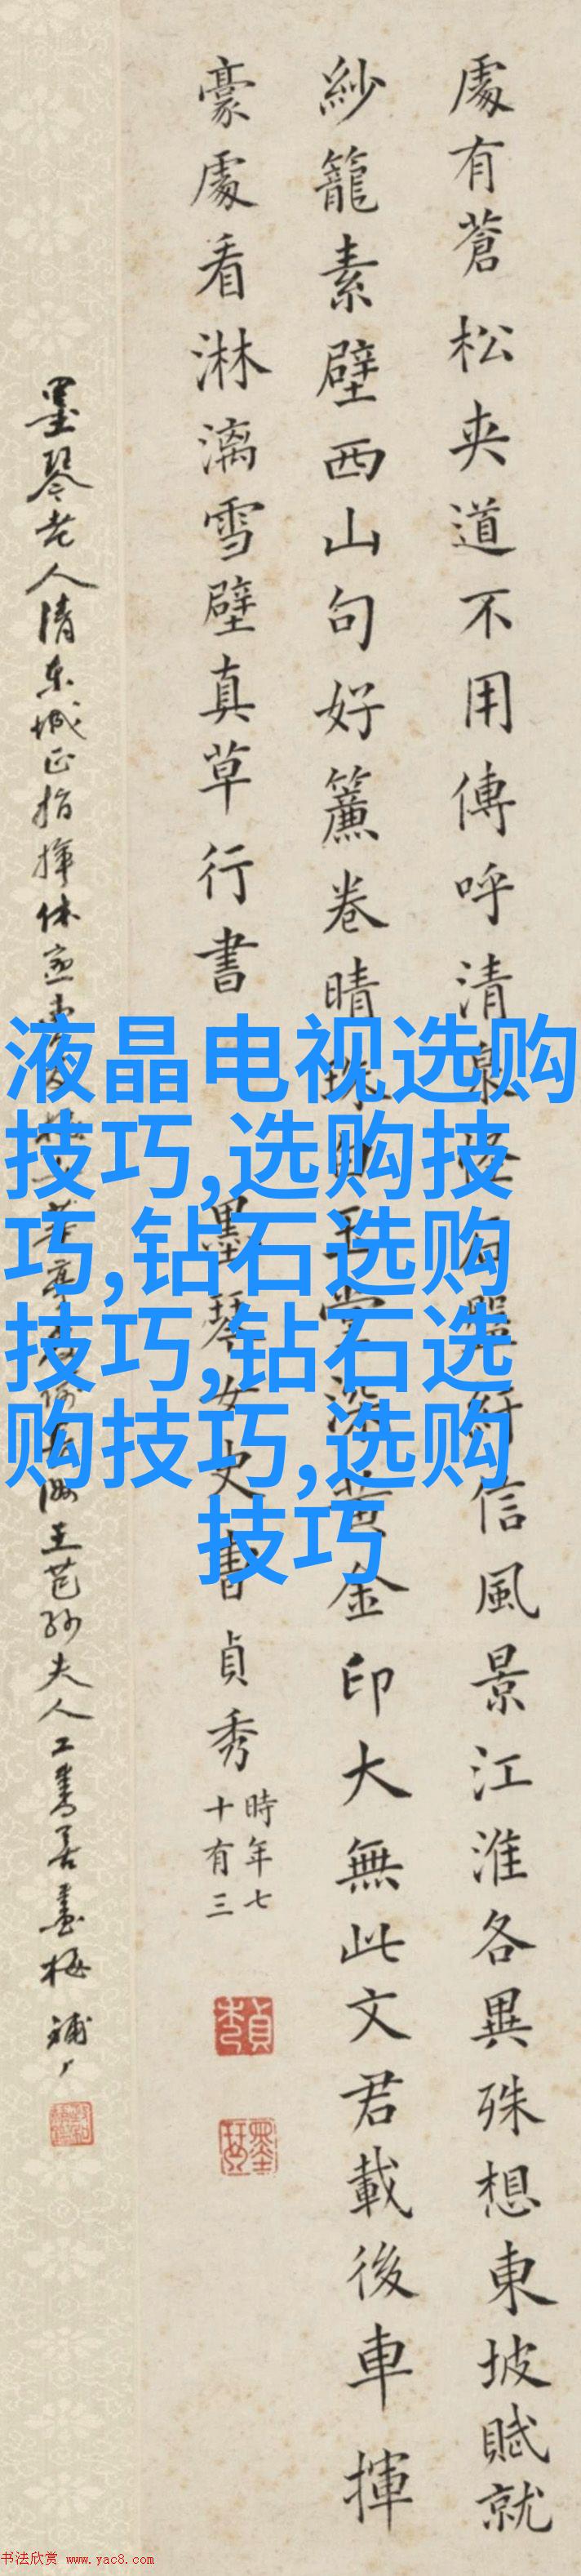 處有蒼松夾道不用傳呼清泉怪石盤紆信風景江淮各異殊想東坡賦就
紗籠素壁西山句好簾卷晴珠白玉堂深黃金印大無此文君載後車揮
豪處看淋漓雪壁真草行書
墨琴女史書貞秀
時年七
十有三
貞秀
墨琴
墨琴老人清东城正指揮休
王芑孙夫人工書善畫梅
液晶电视选购
技巧,选购技
巧,钻石选购
技巧,钻石选
购技巧,选购
技巧
书法欣赏 www.yac8.com